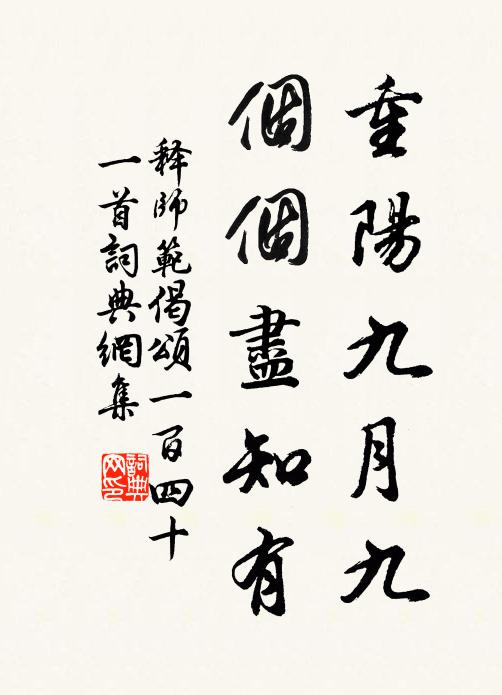 重陽九月九
個個盡知有
释師範偈頌一百四十
一首詞典網集
詞典
网印